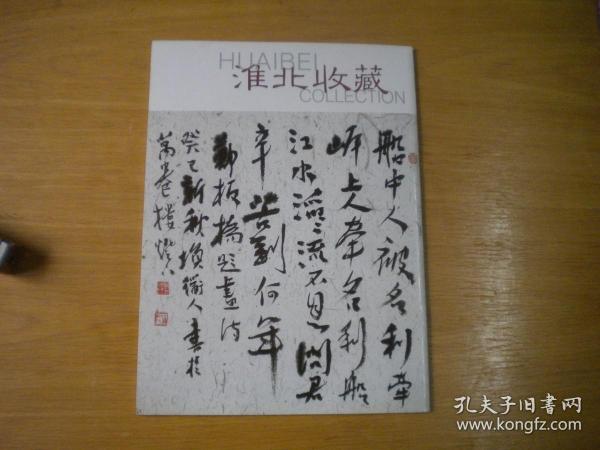 HUAIBEI
淮北收藏
COLLECTION
船中人被名利牵
岸上人牵名利船
江水滔滔流不息问君
辛苦到何年
郑板桥题画诗
癸巳新秋 人书于
万卷楼灯下
孔夫子旧书网
www.kongfz.com